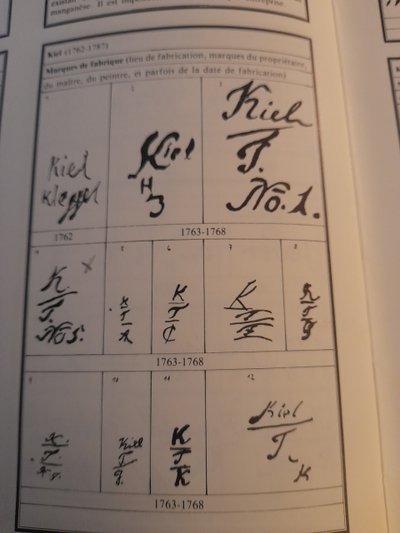 manganèse. Il est
Kiel (1762-1787)
Marques de fabrique (lieu de fabrication, marques du propriétaire,
du maître, du peintre, et parfois de la date de fabrication)
Kiel
Kleppel
1762
2
Kiel
H
3
3
Kiel
T.
No. 1.
1763-1768
K
T.
No 5.
5
K
T
R
6
K
T
C
7
K
T
8
K
T
1763-1768
9
K.
T.
10
Kiel
T
g.
11
K
T
K
12
Kiel
T.
K
1763-1768